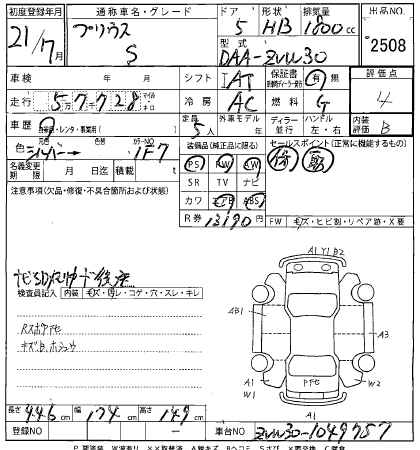 初度登録年月 通称車名・グレード ドア 形状 排気量 出品NO.
21年7月 プリウス S 5 HB 1800cc 2508
型式 DAA-ZVW30
車検 年 月 シフト IAT 保証書 有 無 評価点
走行 57,728 マイル キロ 冷房 AC 燃料 G 4
車歴 自家用・レンタ・事業用( ) 定員 5人 外車モデル 年 ディーラー 並行 ハンドル 左・右 内装評価 B
色 元色 シルバー カラーNO. 1F7 装備品(純正品に限る) セールスポイント(正常に機能するもの)
PS PW AW
名義変更期限 月 日迄 積載 t SR TV ナビ
注意事項(欠品・修復・不具合箇所および状態) カワ エアB ABS
R券 13190円 FW 毛ズ・ヒビ割・リペア跡・X要
検査員記入 内装 毛ズ・汚レ・コゲ・穴・スレ・キレ
A1 Y1 B2
AB1
A3
A1
W1
W2
A1
長さ 446cm 幅 174cm 高さ 149cm
登録NO - 車台NO ZVW30-1049757